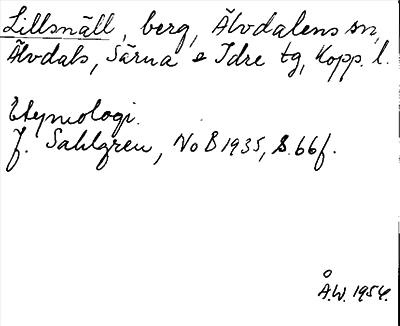 Lillsnäll, berg, Älvdalens sn,
Älvdals, Särna o Idre tg, Kopp. l.
Etymologi.
J. Sahlgren, NoB 1935, s. 66f.
Å.W. 1954.